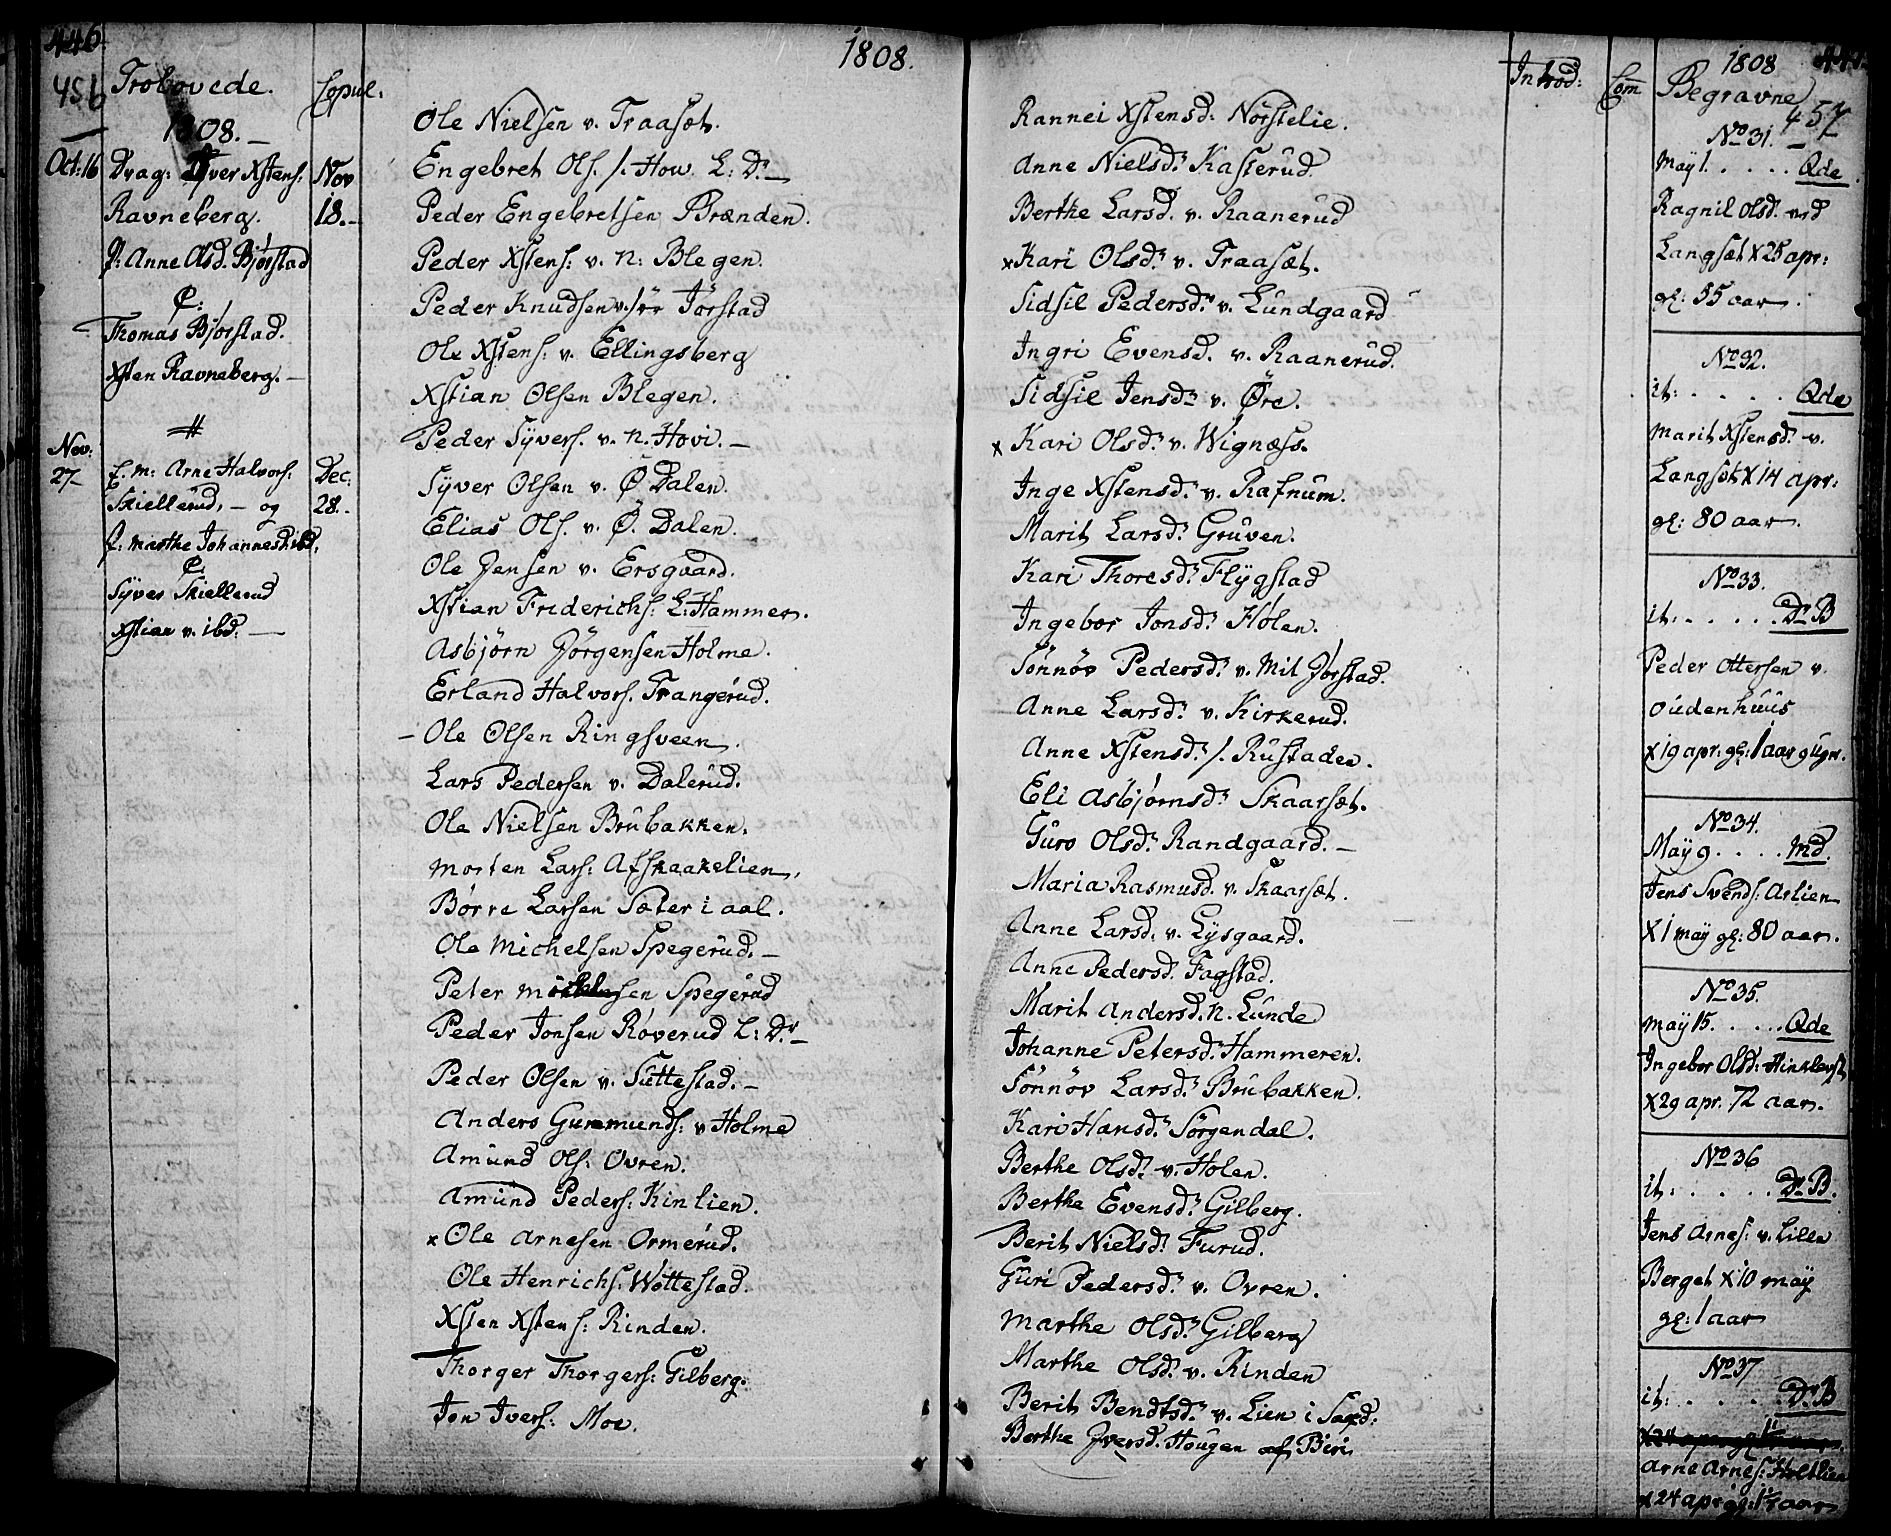 446.
456
Trolovede.
Copul:
1808.
1808. —
Oct: 16
Drag: Syver Xstens:
Nov
Ravneberg.
18. —
P: Anne Olsd. Bjørstad
C:
Thomas Bjørstad.
Xsten Ravneberg. —
Nov:
27 —
E. m: Arne Halvors:
Dec:
Skiellerud, — og
28..
P: Marthe Johannesd. ibd.
C:
Syver Skiellerud
Xstian v. ibd: —
Ole Nielsen v. Traaset.
Engebret Ols. /. How L: Dr —
Peder Engebretsen Brænden.
Peder Xstens: v. N: Blegen.
Peder Knudsen v. sør Jørstad
Ole Xstens: v. Ellingsberg
Xstian Olsen Blegen.
Peder Syvers. v. N. Hovi. —
Syver Olsen v. Ø Dalen.
Elias Ols. v. Ø. Dalen.
Ole Jensen v. Ersgaard.
Xstian Friderichs: L: Hammer.
Asbjørn Jørgensen Holme.
Erland Halvors. Trangerud.
– Ole Olsen Ringsveen.
Lars Pedersen v. Dalerud.
Ole Nielsen Brubakken.
Morten Lars: Afskaakelien.
Børre Larsen Sæter i aal.
Ole Michelsen Spegerud. —
Peter Michelsen Spegerud
Peder Jonsen Røverud L: Dr —
Peder Olsen v. Suttestad. —
Anders Gummunds: v Holme
Amund Ols: Ovren.
Amund Peders: Kinlien.
x Ole Arnesen Ormerud.
Ole Henrichs. Wottestad.
Xsten Xstens: Rinden.
Thorger Thorgers: Gilberg.
Jon Ivers: Moe.
Rannei Xstensd: Nørstelie.
Anne Nielsdr Kasterud.
Berthe Larsd. v. Raanerud
x Kari Olsdr v. Traaset.
Sidsil Pedersdr v. Lundgaard
Ingri Evensd. v. Raanerud.
Sidsil Jensdr v. Øre.
x Kari Olsdr v. Wignæss.
Inge Xstensdr v. Rafnum.
Marit Larsdr Gruven.
Kari Thoresdr Flygstad
Ingebor Jonsdr Holen.
Sønnøv Pedersdr v. Mit Jørstad.
Anne Larsdr v. Kirkerud.
Anne Xstensdr /. Rustaden.
Eli Asbjørnsdr Skaarset.
Guro Olsdr Randgaard. —
Maria Rasmusd. v. Skaarset.
Anne Larsd. v. Lysgaard.
Anne Pedersd. Fagstad.
Marit Andersd. N. Lunde
Johanne Petersdr Hammeren.
Sønnøv Larsdr Brubakken.
Kari Hansdr Sørgendal.
Berthe Olsdr v. Holen.
Berthe Evensdr Gilberg.
Berit Nielsdr Furud.
Guri Pedersdr v. Ovren.
Marthe Olsdr Gilberg
Marthe Olsdr v. Rinden
Berit Bendtsdr v. Lien i
Berthe Iversd. Hougen af Biri
Introd:
Com
1808
Begravne
457
No 31. –
May 1. . . . . Qde
Ragnil Olsd. ved
Langset X 25 apr:
gl: 55 aar.
No 32.
it: . . . . Qde
Marit Xstensd. v.
Langset X 14 apr:
gl: 80 aar.
No 33.
it: . . . . . Dr B
Peder Ottersen v.
Oudenhuus
X 19 apr: gl: 1 aar 9 uger.
No 34.
May 9. . . . Md.
Jens Svends: Aslien
X 1 may gl: 80 aar.
No 35.
May 15. . . . . Qde
Ingebor Olsd:
X 29 apr. 72 aar.
No 36
it: . . . . . Dr B.
Jens Arnes: v. Lille
Berget X 10 may
gl: 1 aar
No 37
it: . . . . . Dr B
Arne Arnes: Holtlien
X 24 apr gl: 1 1/2 aar